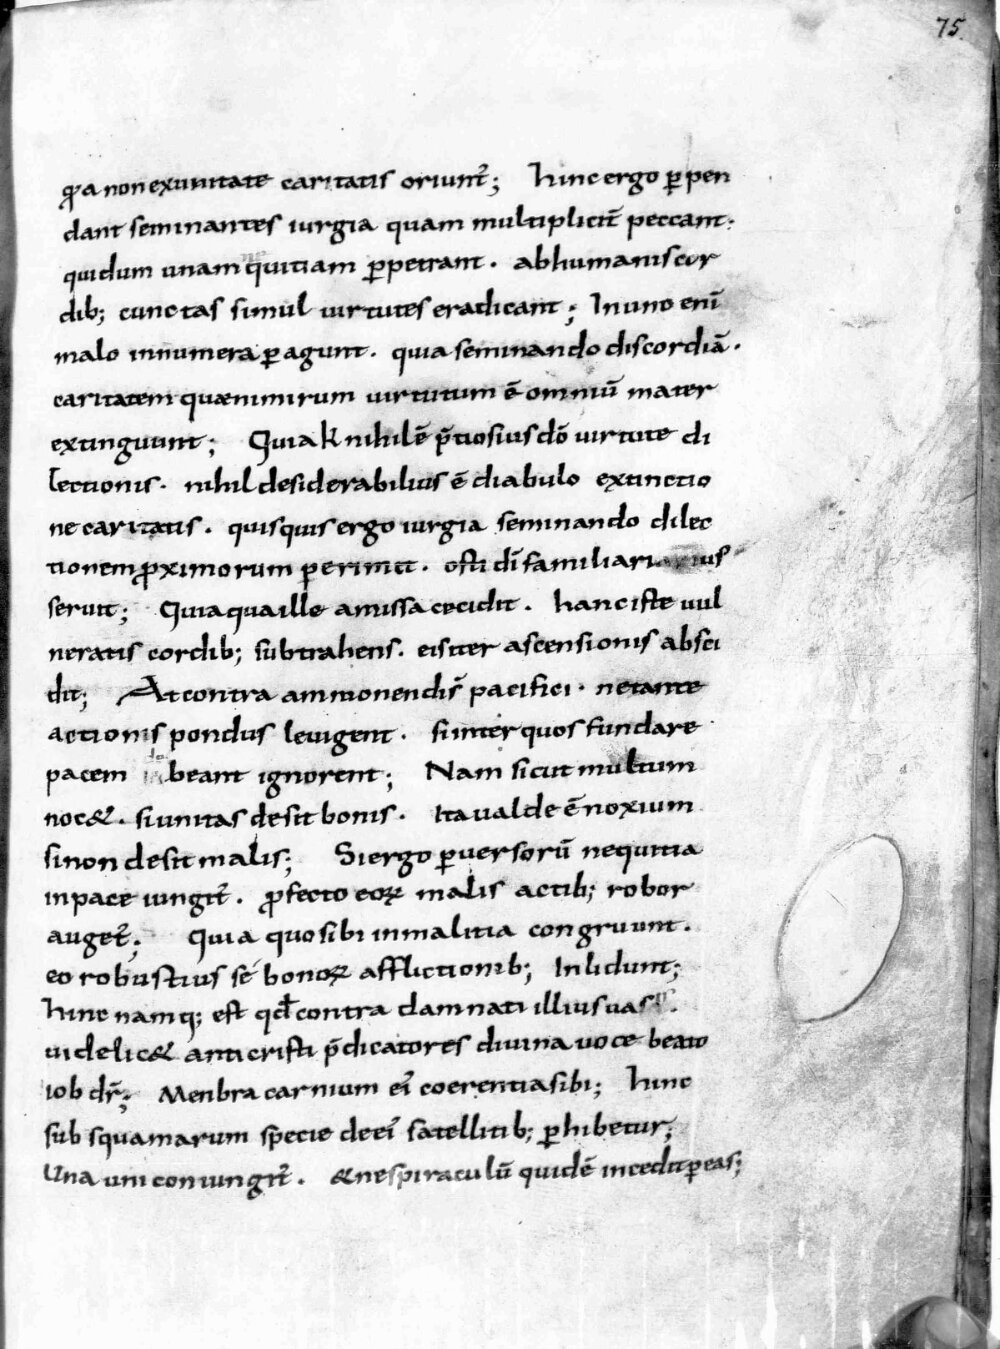 75
qa non ex unitate caritatis oriunt̃; Hinc ergo ꝑpen
dant seminantes iurgia quam multiplicit̃ peccant.
qui dum unam quitiam ꝑpetrant. ab humanis cor
dib; cunctas simul uirtutes eradicant; In uno enī
malo innumera ꝑagunt. quia seminando discordiā.
caritatem quae nimirum uirtutum ē omniū mater
extinguunt; Quia nihil ē p̄tiosius dō uirtute di
lectionis. nihil desiderabilius ē diabulo extinctio
ne caritatis. quisquis ergo iurgia seminando dilec
tionem ꝓximorum perimit. osti dī familiarius
seruit; Quia qua ille amissa cecidit. hanc iste uul
neratis cordib; subtrahens. eis iter ascensionis absci
dit; At contra ammonendi s̄ pacifici. ne tante
actionis pondus leuigent. si inter quos fundare
pacem beant ignorent; Nam sicut multum
noc&. si unitas desit bonis. Ita ualde ē noxium
si non desit malis; Si ergo ꝑuersorū nequitia
in pace iungit̃. ꝓfecto eoꝝ malis actib; robor
auget̃; Quia quo sibi in malitia congruunt.
eo robustius se bonoꝝ afflictionib; Inlidunt;
Hinc namq; est qd̄ contra damnati illius uas
uidelic& anticristi p̄dicatores diuina uoce beato
iob dr̄; Menbra carnium eī coerentia sibi; Hinc
sub squamarum specie de eī satellitib; ꝑhibetur;
Una uni coniungit̃. & ne spiraculū quidē incedit ꝑ eas;